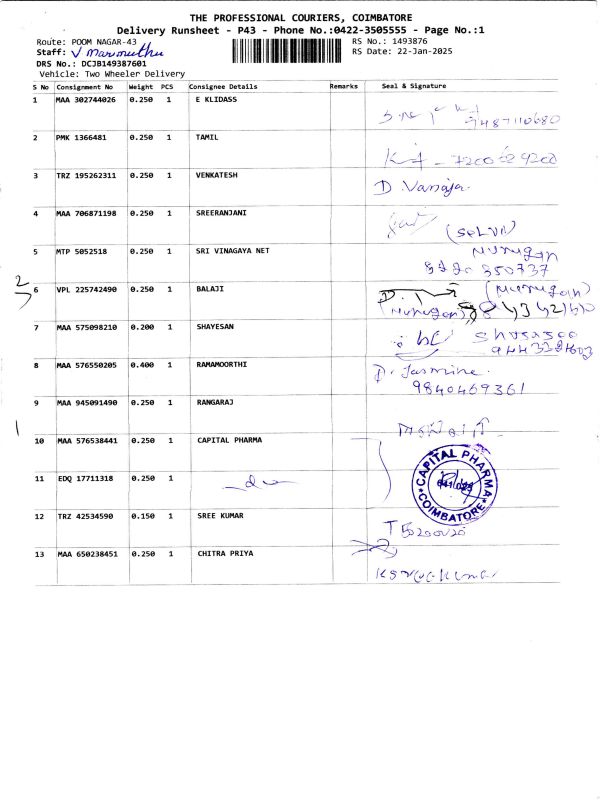 THE PROFESSIONAL COURIERS, COIMBATORE
Delivery Runsheet - P43 - Phone No.:0422-3505555 - Page No.:1
Route: POOM NAGAR-43 RS No.: 1493876
Staff: V Marimuthu RS Date: 22-Jan-2025
DRS No.: DCJB149387601
Vehicle: Two Wheeler Delivery
S No Consignment No Weight PCS Consignee Details Remarks Seal & Signature
1 MAA 302744026 0.250 1 E KLIDASS
9487110680
2 PMK 1366481 0.250 1 TAMIL
3 TRZ 195262311 0.250 1 VENKATESH D. Vanaja
4 MAA 706871198 0.250 1 SREERANJANI
(SELVI)
5 MTP 5052518 0.250 1 SRI VINAGAYA NET Murugan
350737
2
6 VPL 225742490 0.250 1 BALAJI (Murugan)
(Murugan)
7 MAA 575098210 0.200 1 SHAYESAN
8 MAA 576550205 0.400 1 RAMAMOORTHI D. Jasmine
9840469361
9 MAA 945091490 0.250 1 RANGARAJ
1
10 MAA 576538441 0.250 1 CAPITAL PHARMA
CAPITAL PHARMA
COIMBATORE
11 EDQ 17711318 0.250 1 do
12 TRZ 42534590 0.150 1 SREE KUMAR
13 MAA 650238451 0.250 1 CHITRA PRIYA